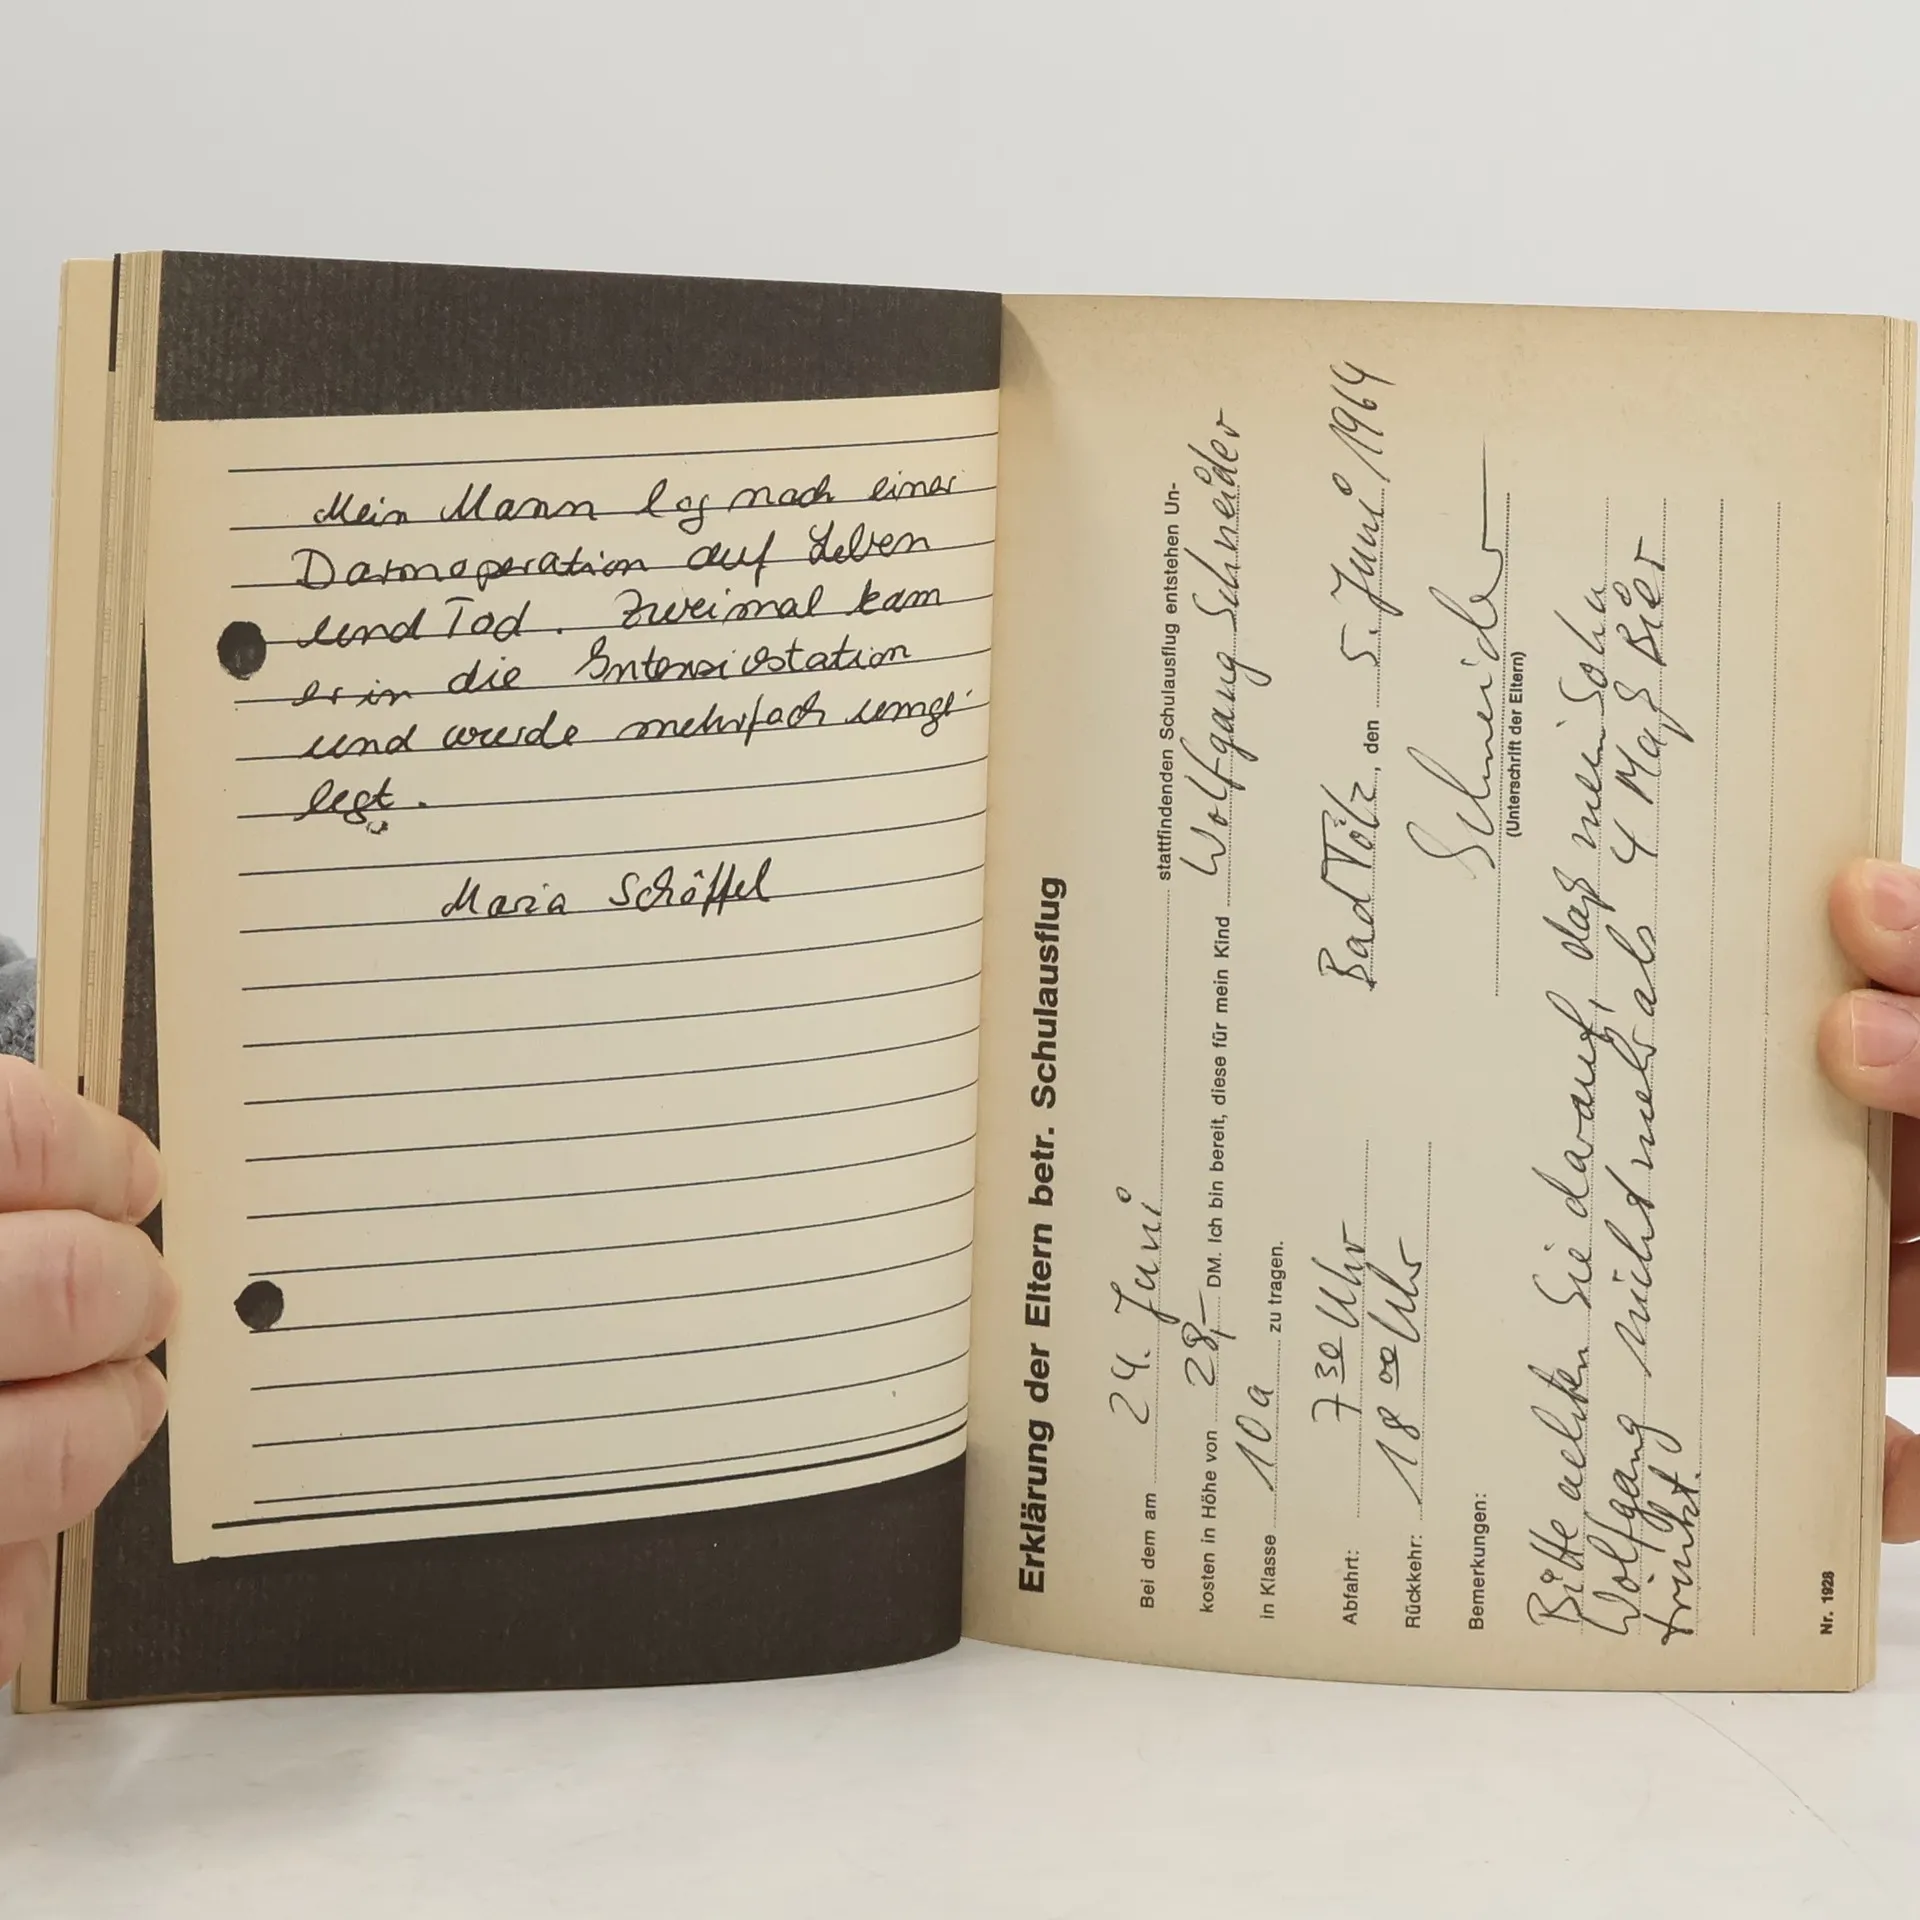 Mein Mann lag nach einer
Darmoperation auf Leben
und Tod. Zweimal kam
er in die Intensivstation
und wurde mehrfach umge-
legt.
Maria Schöffel
Erklärung der Eltern betr. Schulausflug
Bei dem am 24. Juni stattfindenden Schulausflug entstehen Un-
kosten in Höhe von 28,— DM. Ich bin bereit, diese für mein Kind Wolfgang Schneider
in Klasse 10a zu tragen.
Abfahrt: 7 30 Uhr Bad Tölz, den 5. Juni 1964
Rückkehr: 18 00 Uhr
Schneider
(Unterschrift der Eltern)
Bemerkungen:
Bitte achten Sie darauf, daß mein Sohn
Wolfgang nicht mehr als 4 Maß Bier
trinkt.
Nr. 1928